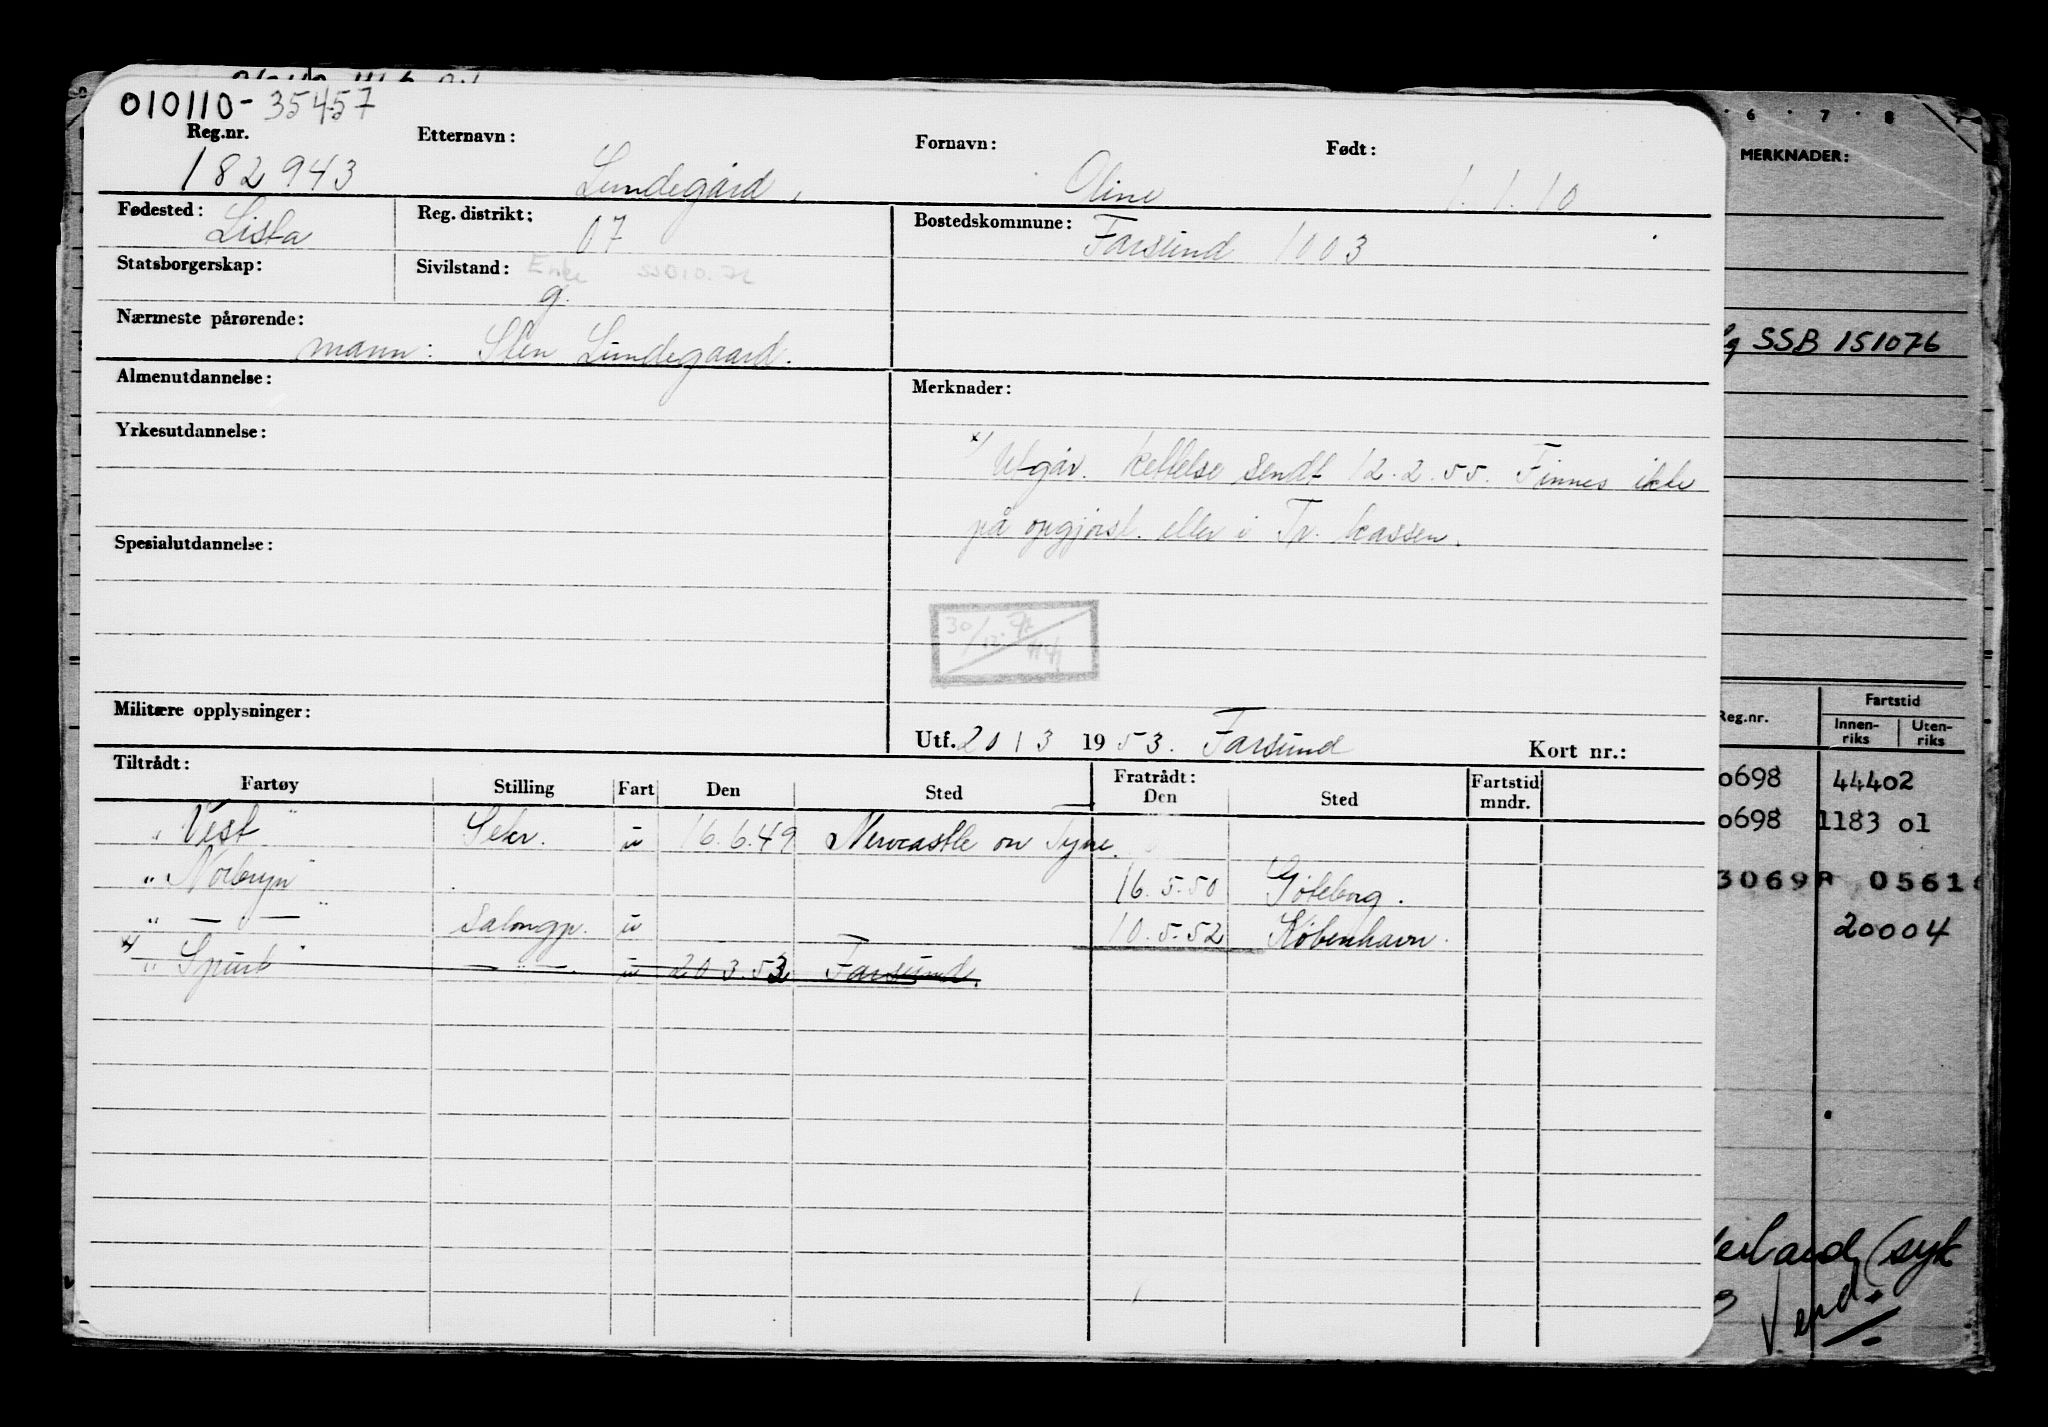 010110-35457
Reg.nr. Etternavn: Fornavn: Født:
182943 Lundegård, Oline 1.1.10
Fødested: Reg. distrikt: Bostedskommune:
Lista 07 Farsund 1003
Statsborgerskap: Sivilstand: Enke
g.
Nærmeste pårørende:
mann: Sten Lundegaard.
Almenutdannelse: Merknader:
Yrkesutdannelse:
x/ Utgår. kellelse sendt 12.2.55. Finnes ikke
på opgjørst. eller i Tr. kassen.
Spesialutdannelse:
30/12.
Militære opplysninger:
Utf. 20 13 1953. Farsund Kort nr.:
Tiltrådt: Fratrådt:
Fartøy Stilling Fart Den Sted Den Sted Fartstid mndr.
" Vest " Sekr. u 16.6.49 Newcastle on Tyne.
" Norbryn " 16.5.50 Gøteborg.
" — " — " Salongp. u 10.5.52 København.
x/ " Spurt " — " —. u 20 3.53 Farsund.
6 . 7 . 8
MERKNADER:
g SSB 151076
Reg.nr. Fartstid
Innen-riks Uten-riks
0698 44402
0698 1183 01
30698 0561
20004
(syk
Vend.